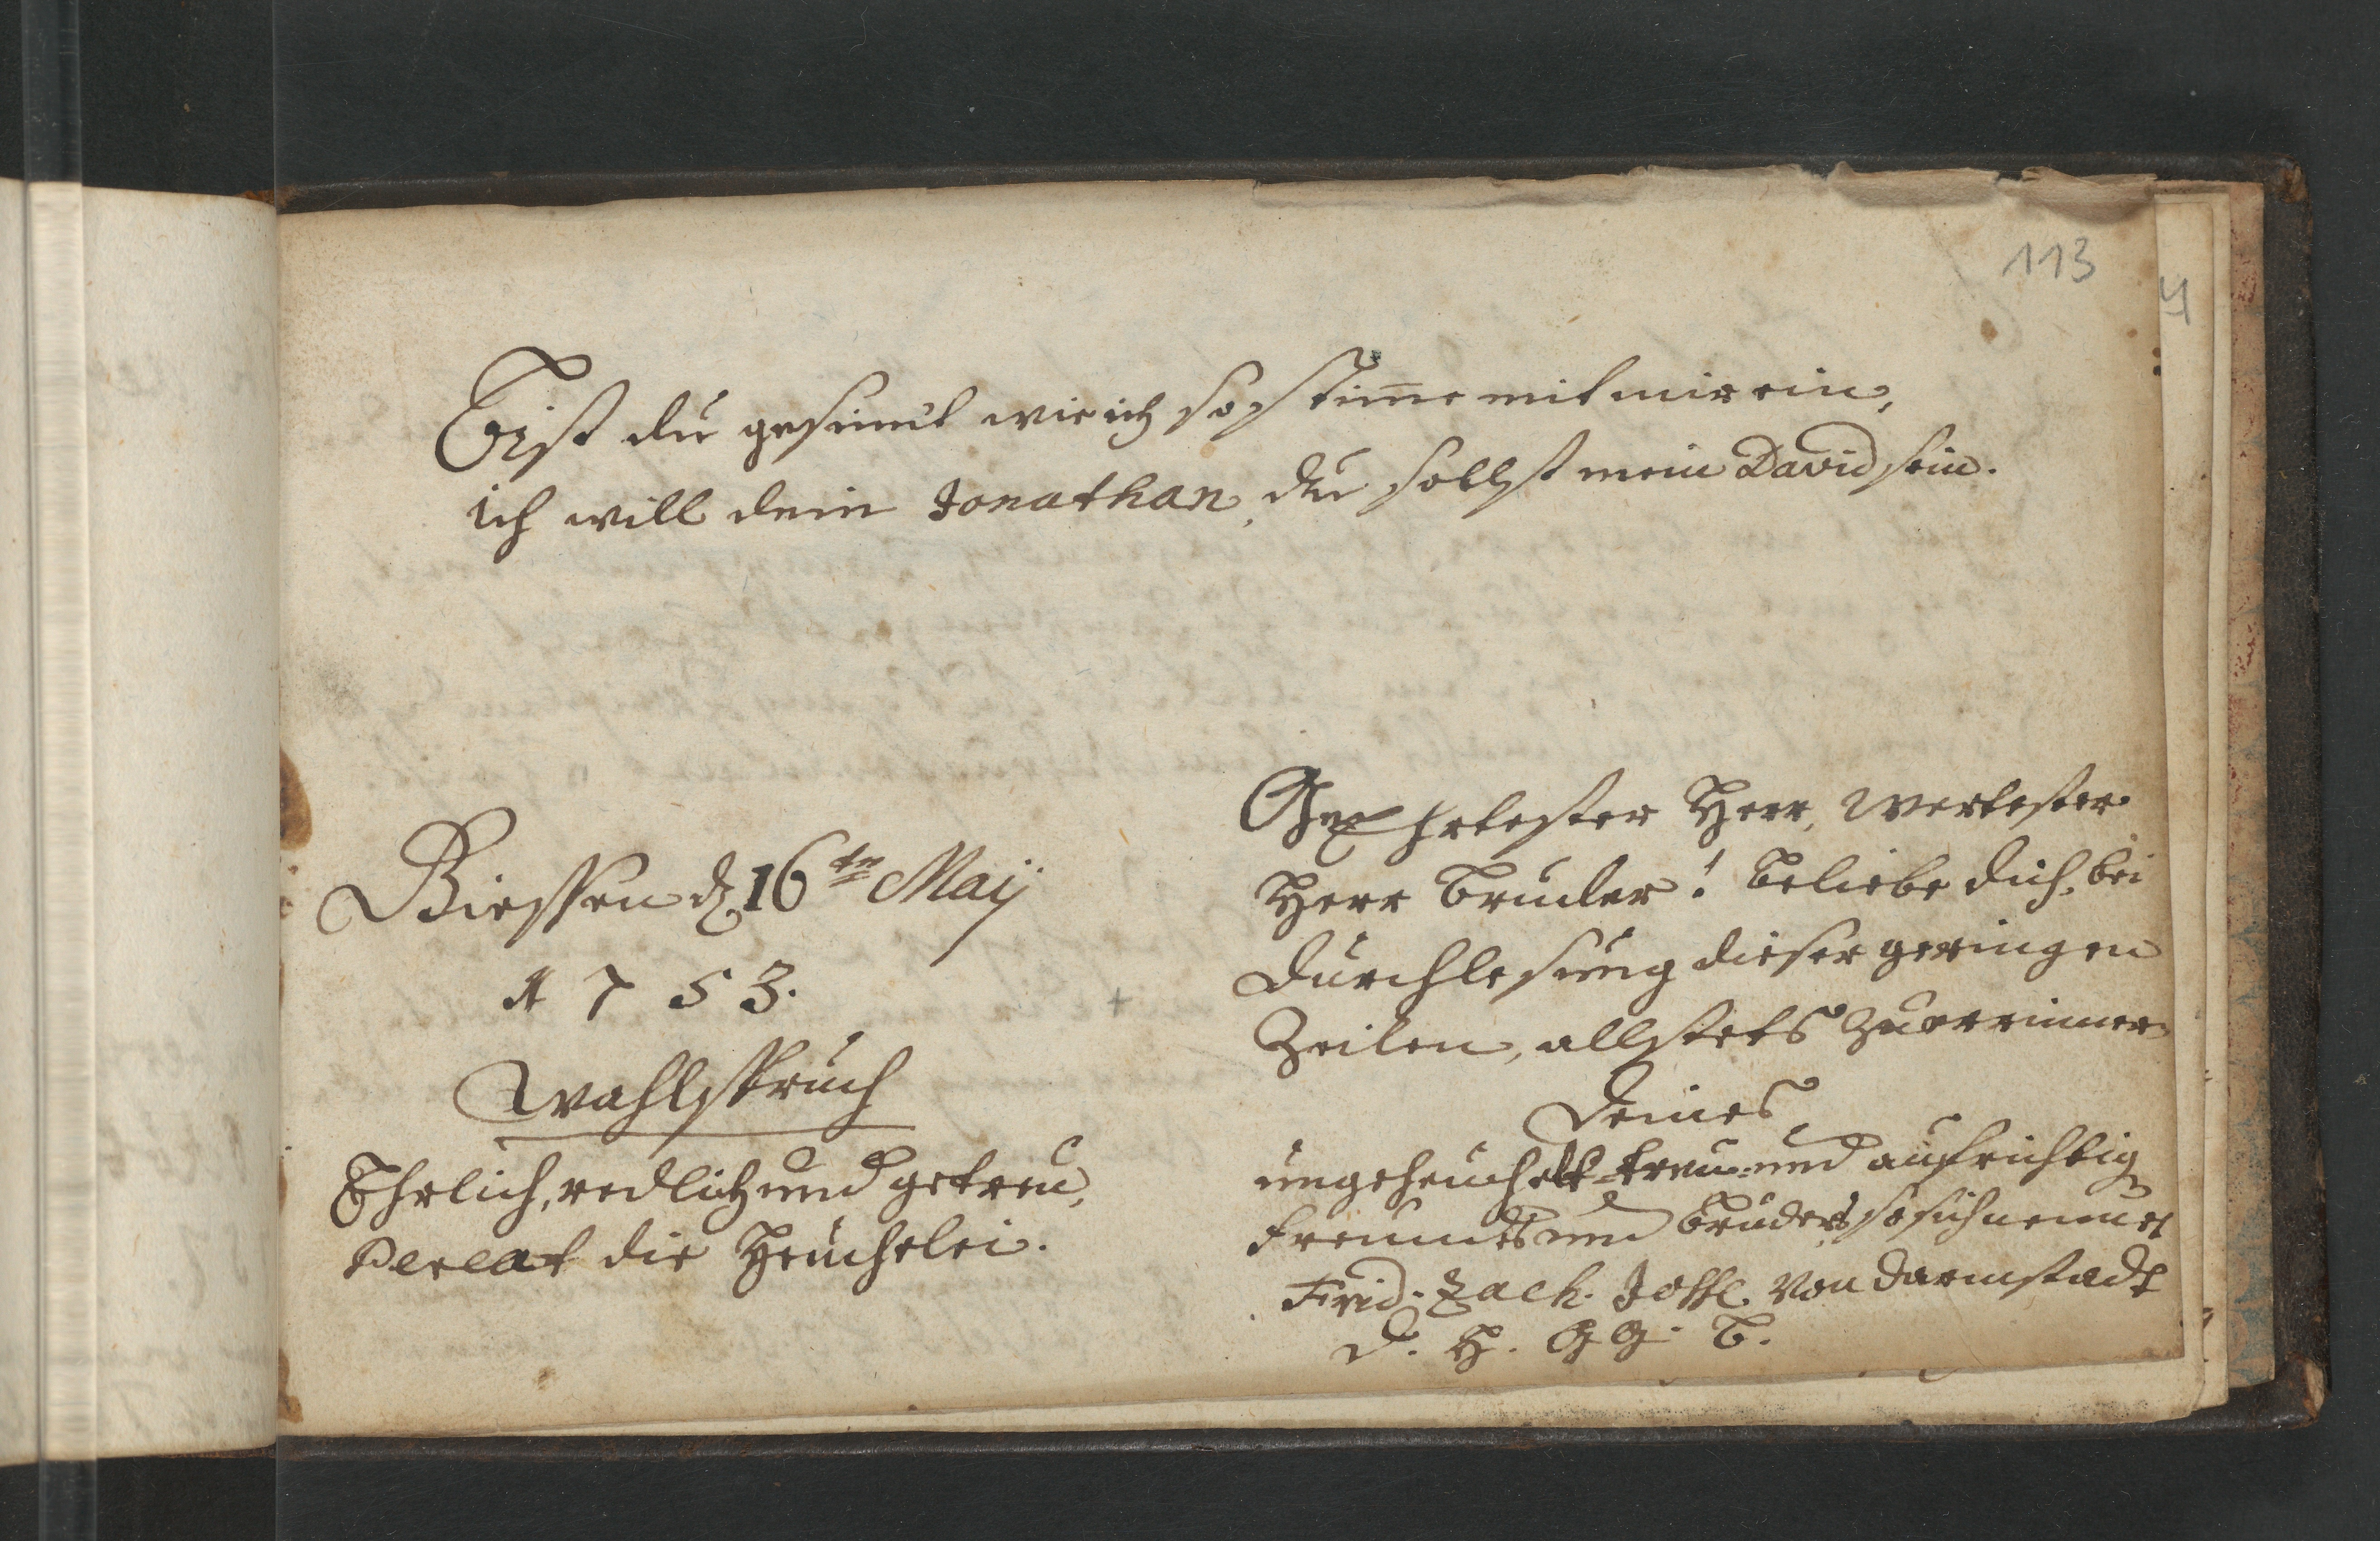 113
4
Bist du gesinnt wie ich so stim̅e mit mir ein,
ich will dein Jonathan, du sollst mein David sein.
Giessen d. 16ten Maij
1753.
Wahlspruch
Ehrlich, redlich und getreu,
Pereat die Heuchelei.
GeEhrtester Herr, Wertester
Herr Bruder! beliebe dich, bei
Durchlesung dieser geringen
Zeilen, allstets zu errinner
Deines
ungeheuchelt-treu- und aufrichtig
Freundes und Bruders, so sich nennet
Frid. Zach. von Darmstadt
D. H. G G. B.